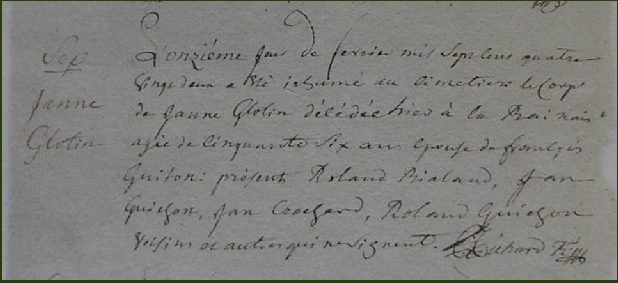 Sep
Janne
Glotin
L'onziéme jour de fevrier mil sept cens quatre
vingt deux a été inhumé au cimetiere le Corp
de Janne Glotin décédée hier à la
agée de Cinquante Six ans epouse de françois
Guiton: présent Roland Rialand, Jan
Guichon, Jan Crochard, Roland Guichon
voisins et autres qui ne signent. Richard